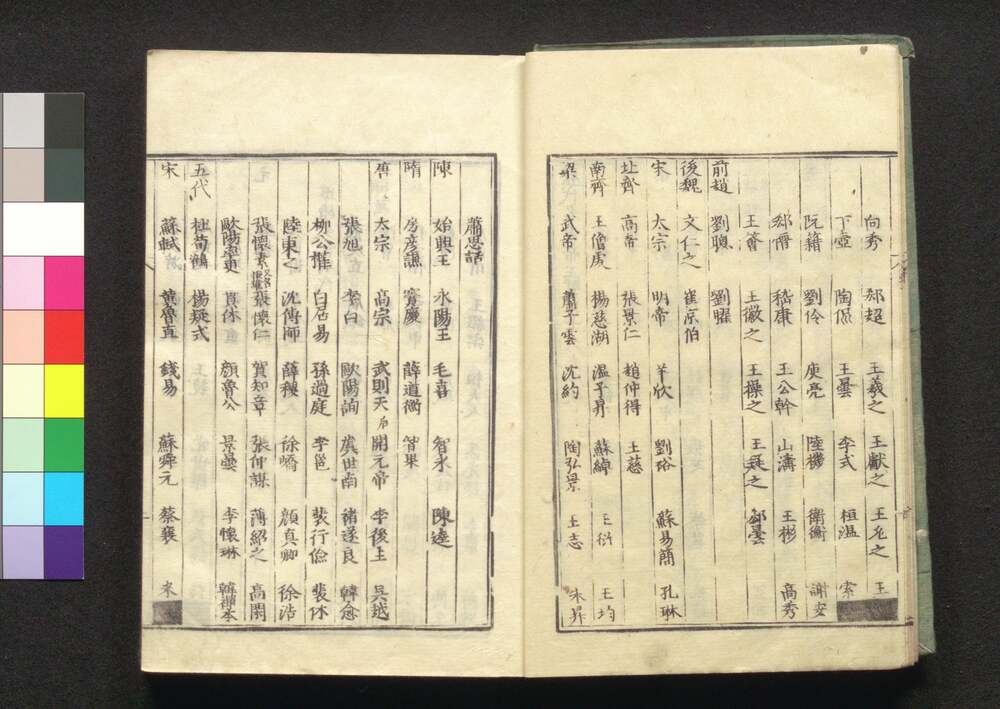 向秀 郄超 王羲之 王獻之 王允之 王
卞壼 陶侃 王曇 李式 桓温 索
阮籍 劉伶 庾亮 陸機 衛衡 謝安
郄愔 嵇康 王公幹 山濤 王彬 高秀
王薈 王徽之 王操之 王廷之 郄曇
前趙 劉聰 劉曜
後魏 文仁之 崔京伯
宋 太宗 明帝 羊欣 劉珞 蘇易簡 孔琳
北齊 高帝 張景仁 趙仲得 王慈
南齊 王僧虔 楊慈湖 温子昇 蘇綽 王衍 王均
梁 武帝 蕭子雲 沈約 陶弘景 王志 朱昇
蕭思話
陳 始興王 永陽王 毛喜 智永 陳逵
隋 房彦謙 竇慶 薛道衡 智果
唐 太宗 高宗 武則天后 開元帝 李後主 吳越
張旭 李白 歐陽詢 虞世南 褚遂良 韓愈
柳公權 白居易 孫過庭 李邕 裴行儉 裴休
陸東之 沈傳師 薛稷 徐嶠 顔真卿 徐浩
張懷素 張懷仁 賀知章 張仲謀 薄紹之 高閑
歐陽率更 貫休 顔魯公 景雲 李懷琳 韓擇木
五代 杜荀鶴 楊凝式
宋 蘇軾 黄魯直 錢易 蘇舜元 蔡襄 米